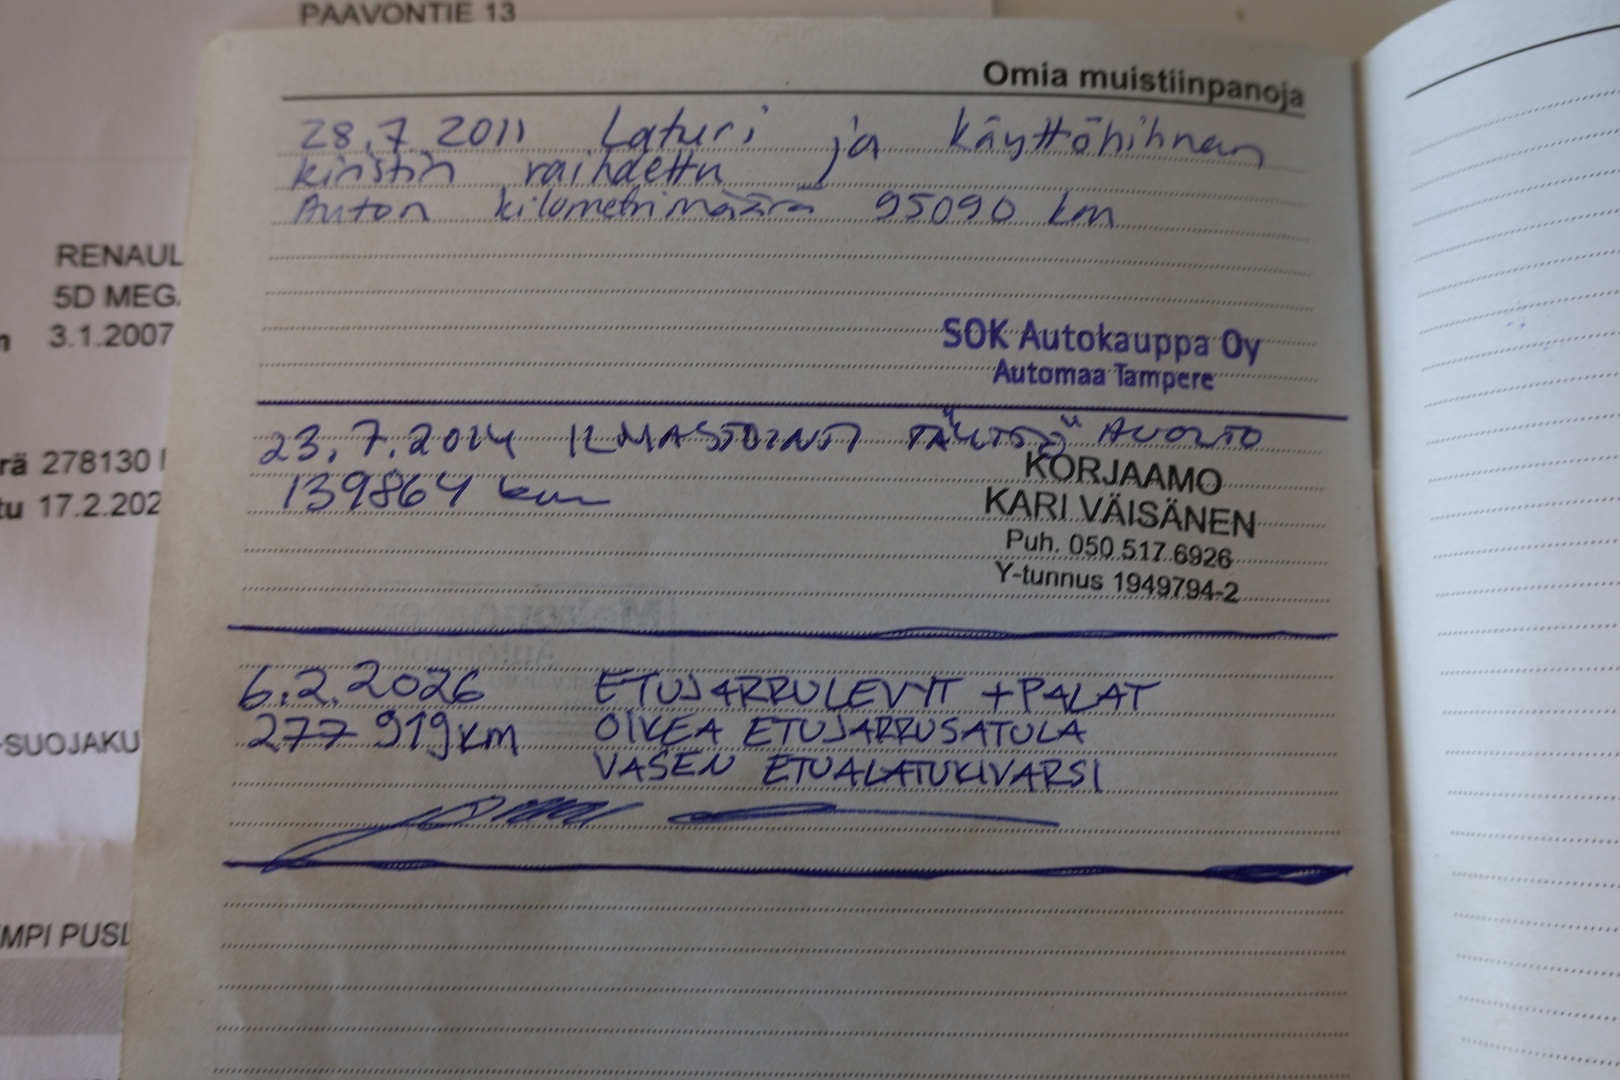 PAAVONTIE 13
RENAUL
5D MEGA
3.1.2007
rä 278130
tu 17.2.202
-SUOJAKU
MPI PUSL
Omia muistiinpanoja
28.7.2011 Laturi ja käyttöhihnan
kiristin vaihdettu
Auton kilometrimäärä 95090 km
SOK Autokauppa Oy
Automaa Tampere
23.7.2014 ILMASTOINTI TÄYTTÖ HUOLTO
139864 km
KORJAAMO
KARI VÄISÄNEN
Puh. 050 517 6926
Y-tunnus 1949794-2
6.2.2026 ETUJARRULEVYT + PALAT
277 919km OIKEA ETUJARRUSATULA
VASEN ETUALATUKIVARSI